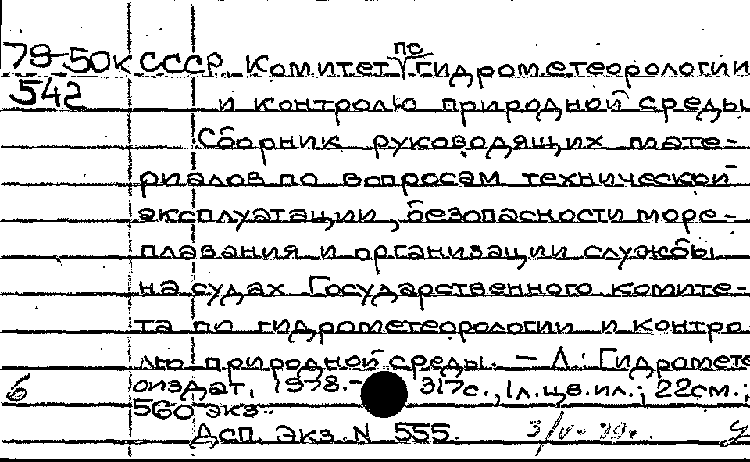 78-50к СССР. Комитет по гидрометеорологии
542 и контролю природной среды
Сборник руководящих мате-
риалов по вопросам технической
эксплуатации, безопасности море-
плавания и организации службы
на судах Государственного комите-
та по гидрометеорологии и контро
лю природной среды. - Л.: Гидромете
б оиздат, 1978. - 317с., 1л.цв.ил.; 22см.;
560 экз.
Дсп. Экз. N 555.